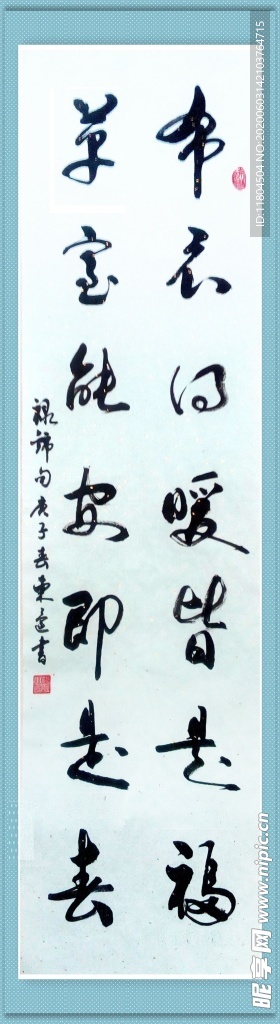 布衣得暖皆是福
草室能安即是春
禄谛句庚子春东建书
昵享网 www.nipic.cn
ID:11804504 NO:20200603142103764715